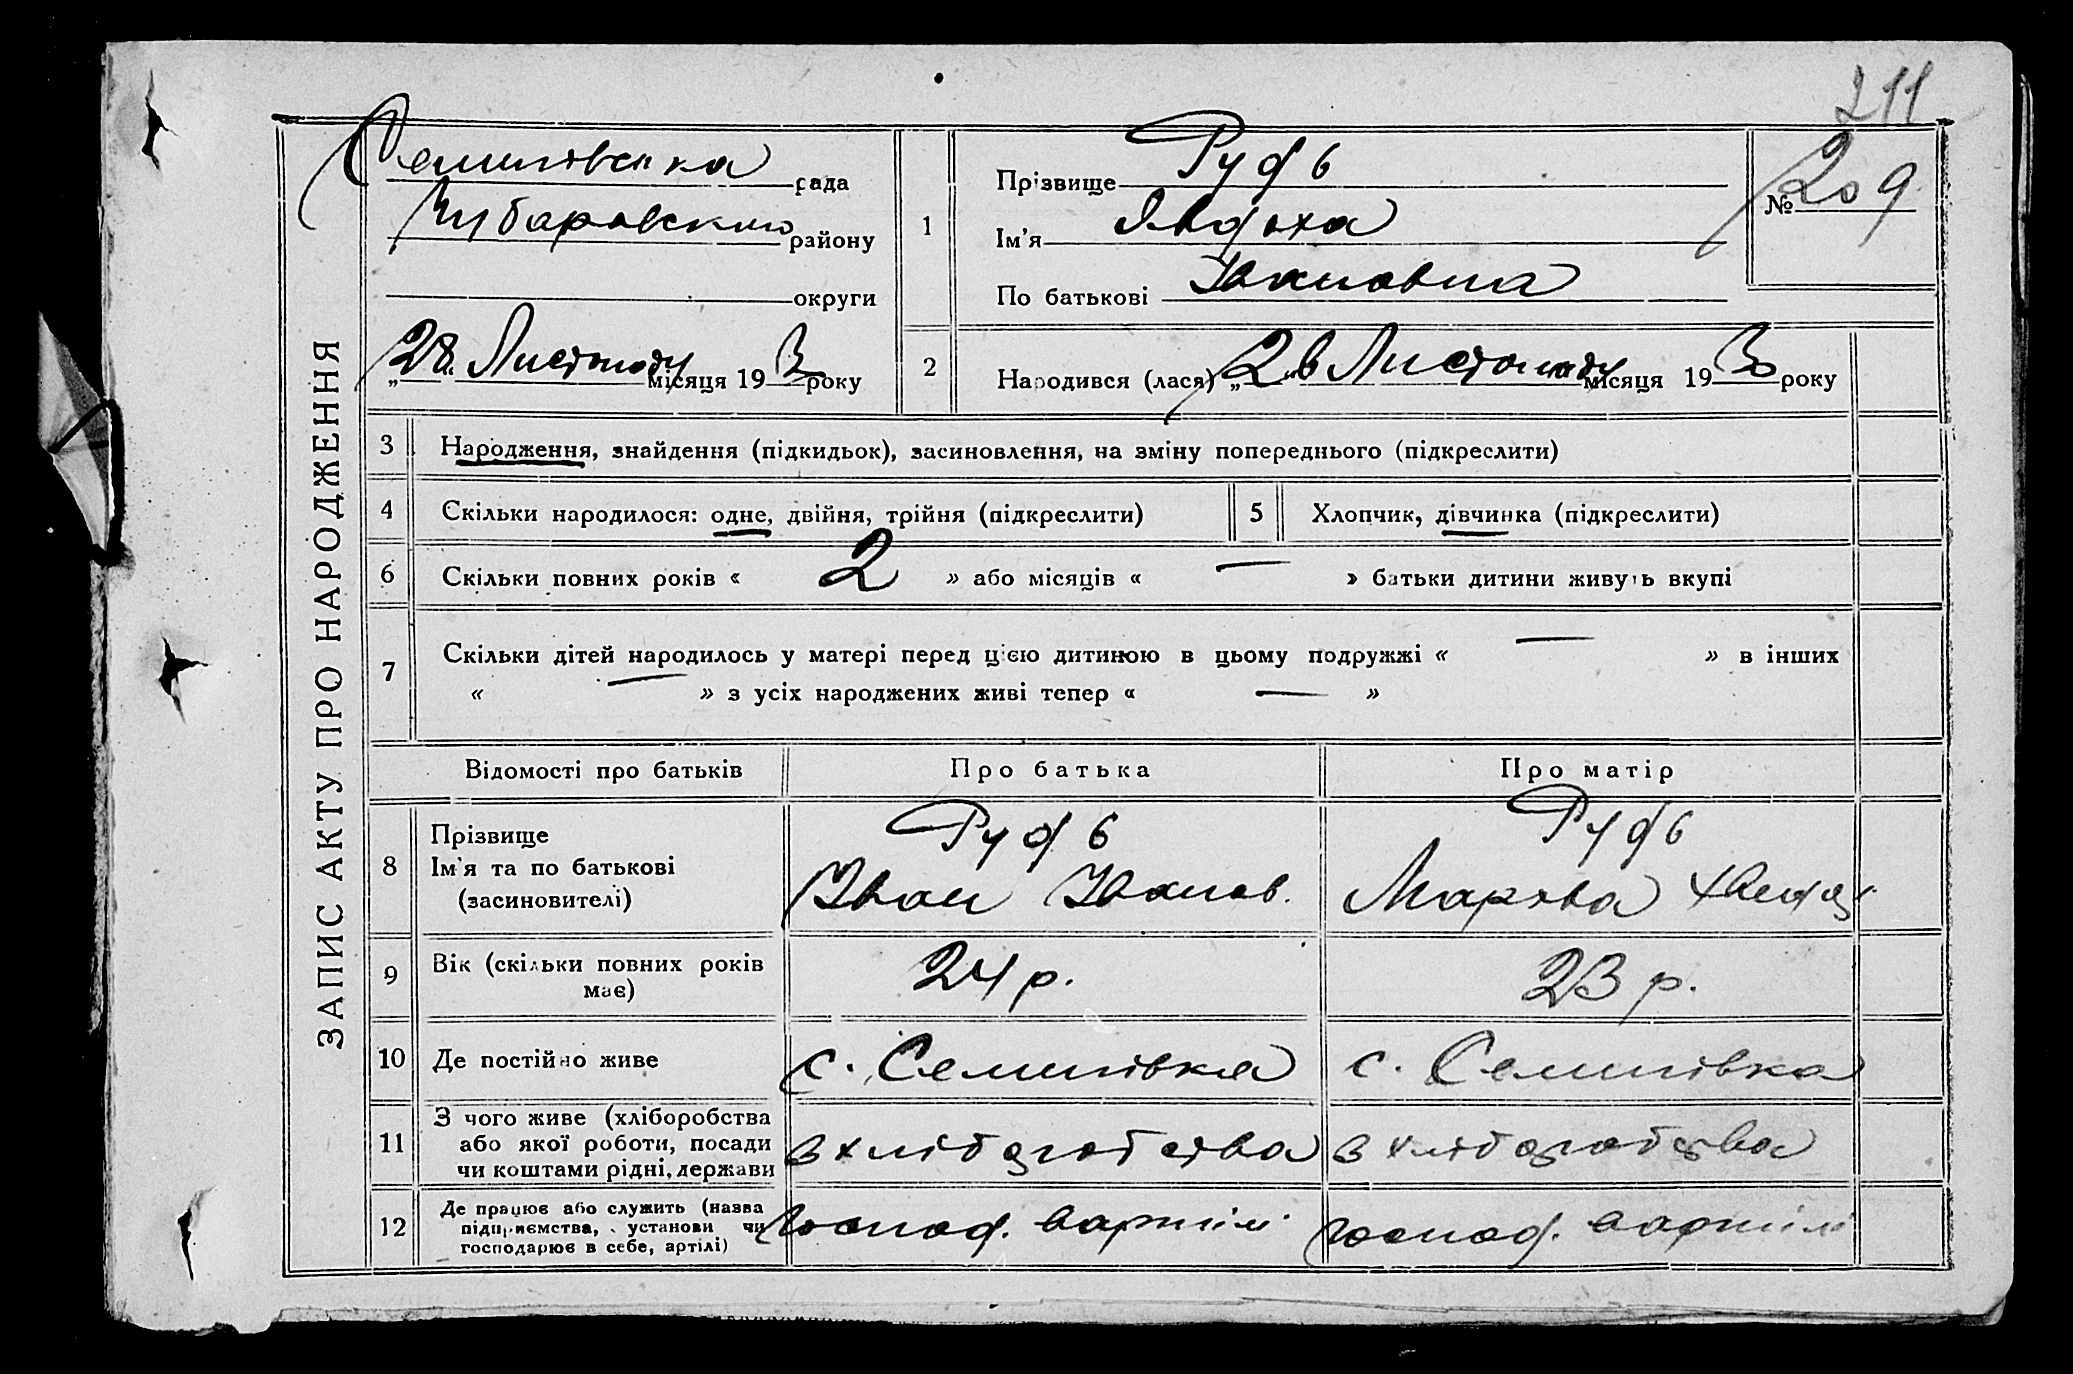 211
Семипівська рада
Чубаровського району
округи
„28" Листопаду місяця 193 року
1
Прізвище Рудь
Ім'я Явдоха
По батькові Івановна
№ 209
2
Народився (лася) „26" Листопаду місяця 1930 року
ЗАПИС АКТУ ПРО НАРОДЖЕННЯ
3 Народження, знайдення (підкидьок), засиновлення, на зміну попереднього (підкреслити)
4 Скільки народилося: одне, двійня, трійня (підкреслити)
5 Хлопчик, дівчинка (підкреслити)
6 Скільки повних років « 2 » або місяців « — » батьки дитини живуть вкупі
7 Скільки дітей народилось у матері перед цією дитиною в цьому подружжі « — » в інших
« — » з усіх народжених живі тепер « — »
Відомості про батьків Про батька Про матір
8 Прізвище
Ім'я та по батькові
(засиновителі)
Рудь
Іван Іванов.
Рудь
Мархва
9 Вік (скільки повних років
має)
24 р.
23 р.
10 Де постійно живе
с. Семипівка
с. Семипівка
11 З чого живе (хліборобства
або якої роботи, посади
чи коштами рідні, держави
з хліборобства
з хліборобства
12 Де працює або служить (назва
підприємства, установи чи
господарює в себе, артілі)
господ. вартілі
господ. вартілі